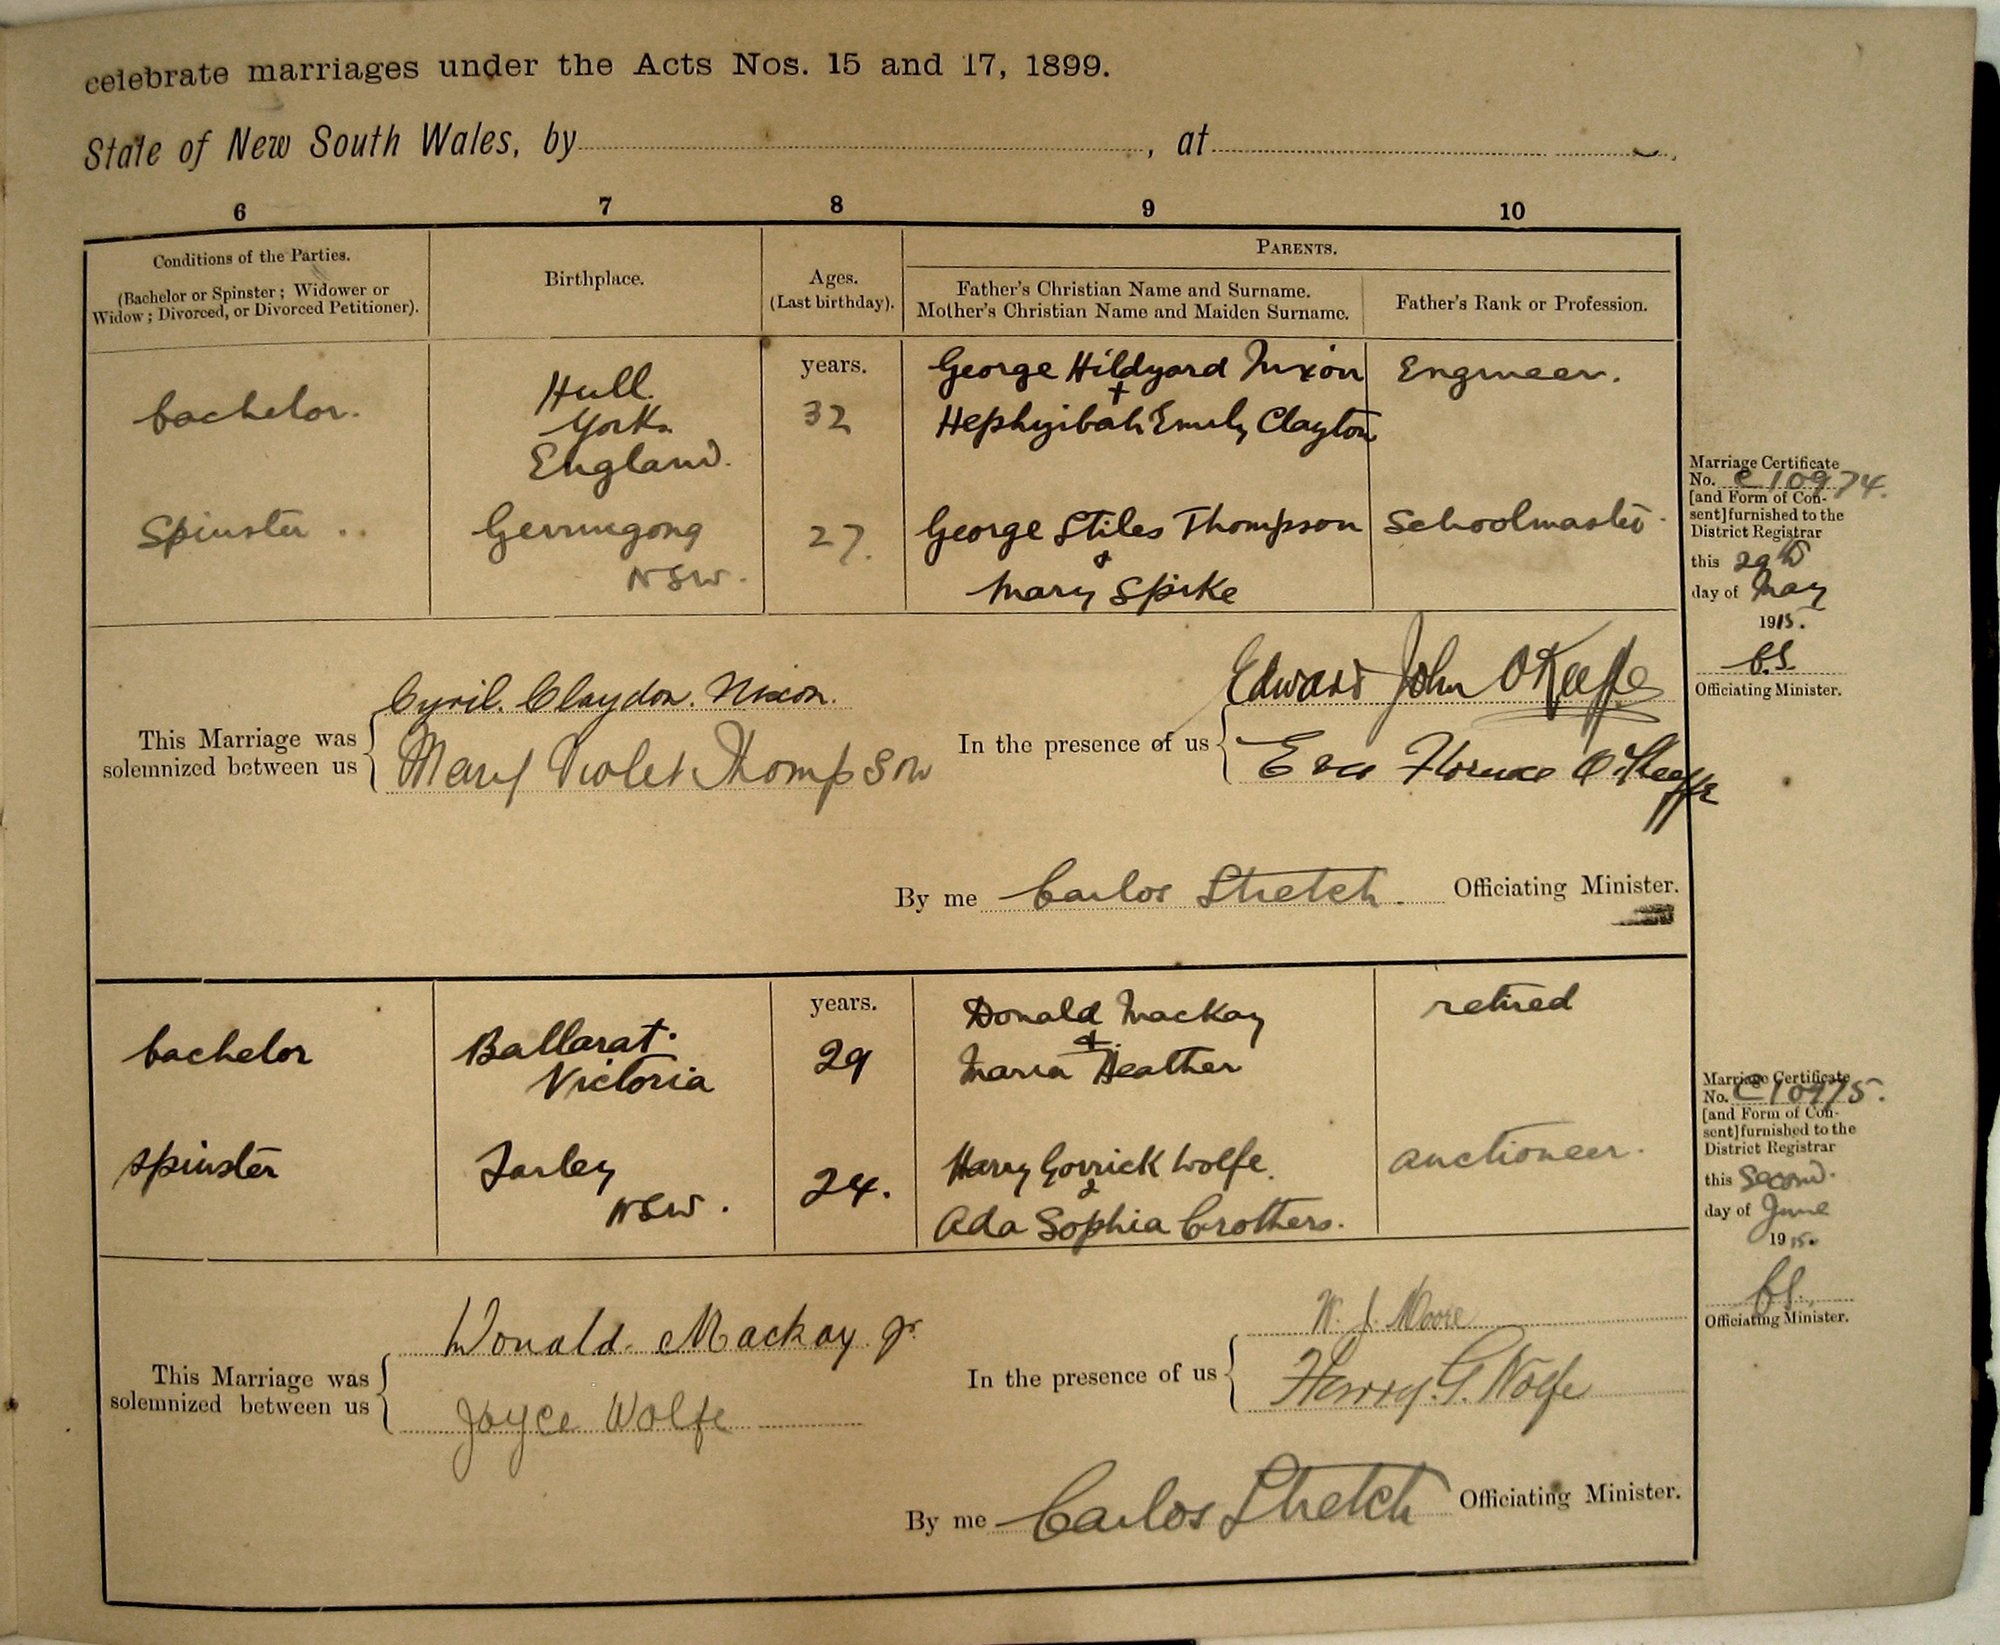 celebrate marriages under the Acts Nos. 15 and 17, 1899.
State of New South Wales, by , at
6 7 8 9 10
Conditions of the Parties.
(Bachelor or Spinster; Widower or
Widow; Divorced, or Divorced Petitioner).
Birthplace.
Ages.
(Last birthday).
PARENTS.
Father's Christian Name and Surname.
Mother's Christian Name and Maiden Surname.
Father's Rank or Profession.
bachelor.
Hull
York
England.
years.
32
George Hildyard Nixon
+
Hephzibah Emily Clayton
Engineer.
Spinster ..
Gerringong
NSW.
27.
George Stiles Thompson
&
Mary Spike
Schoolmaster
Marriage Certificate
No. C 10974.
[and Form of Con-
sent] furnished to the
District Registrar
this 29th
day of May
1915.
C.S.
Officiating Minister.
This Marriage was
solemnized between us
Cyril. Claydon. Nixon.
Mary Violet Thompson
In the presence of us
Edward John O'Keeffe
Eva Florence O'Keeffe
By me Carlos Stretch. Officiating Minister.
bachelor
Ballarat.
Victoria
years.
29
Donald Mackay
&
Maria Heather
retired
spinster
Farley
NSW.
24.
Harry Gorrick Wolfe.
&
Ada Sophia Crothers.
auctioneer.
Marriage Certificate
No. C10975.
[and Form of Con-
sent] furnished to the
District Registrar
this Second.
day of June
1915.
C.S.
Officiating Minister.
This Marriage was
solemnized between us
Donald. Mackay Jr
Joyce Wolfe
In the presence of us
W. J. Moore
Harry. G. Wolfe
By me Carlos Stretch Officiating Minister.